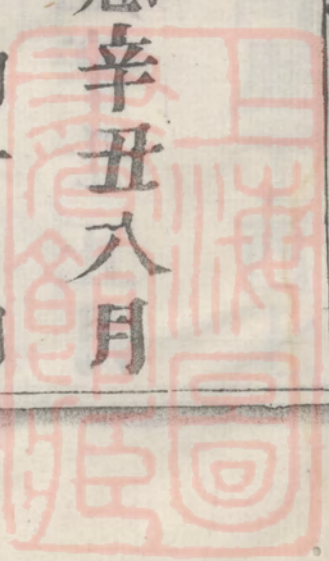 辛丑八月
上海圖
書館藏